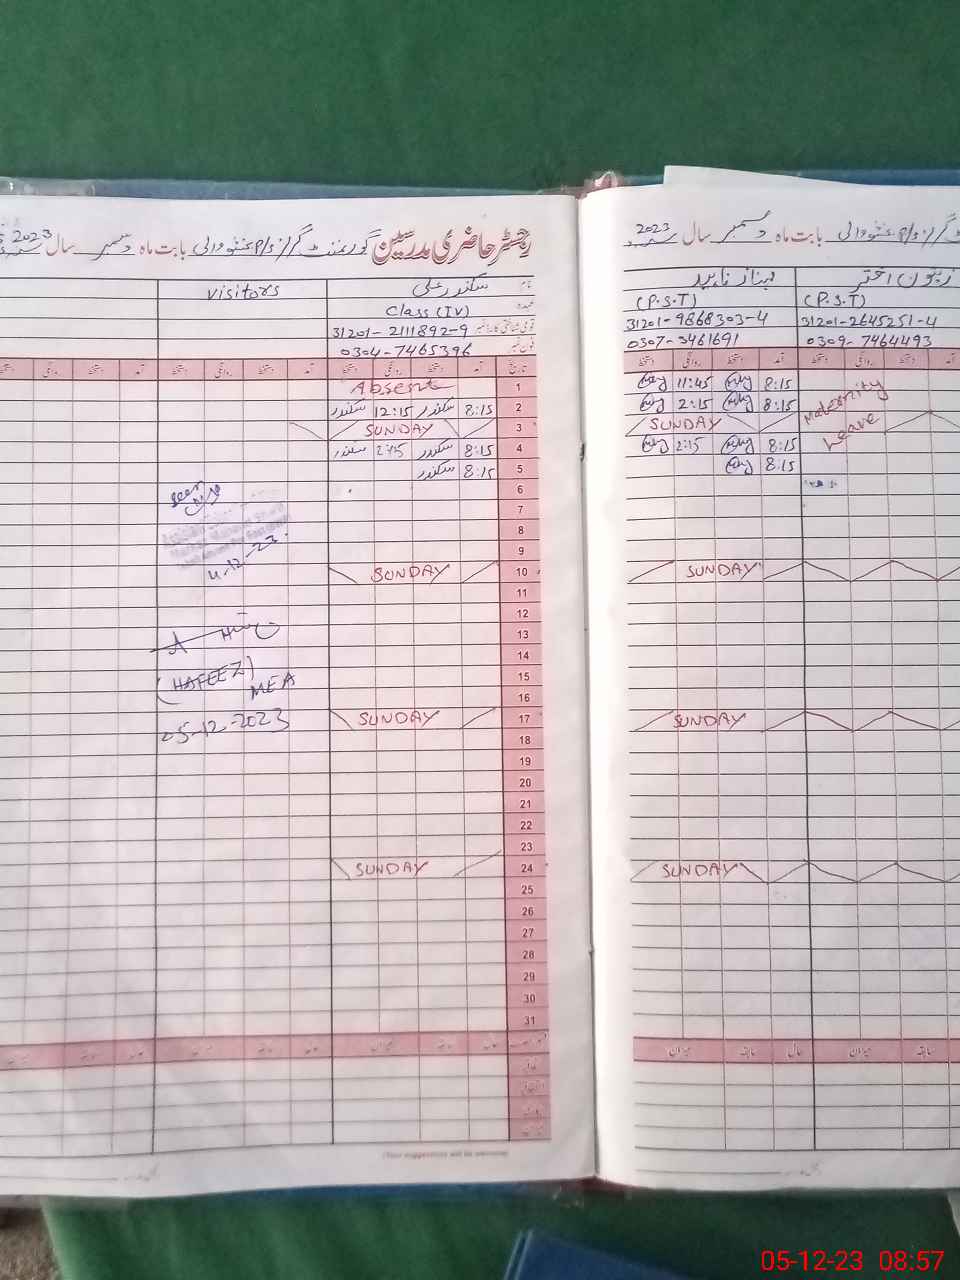 رجسٹر حاضری مدرسین گورنمنٹ گرلز بابت ماہ دسمبر سال 2023
نام سکندر علی
visitors
عہدہ Class (IV)
قومی شناختی کارڈ نمبر 31201-2111892-9
فون نمبر 0304-7465396
تاریخ آمد دستخط روانگی دستخط آمد دستخط روانگی دستخط آمد دستخط روانگی
1 Absent
2 8:15 سکندر 12:15 سکندر
3 SUNDAY
4 8:15 سکندر 2:15 سکندر
5 8:15 سکندر
6
7
8
9
10 SUNDAY
11
12
13
14
15
16
17 SUNDAY
18
19
20
21
22
23
24 SUNDAY
25
26
27
28
29
30
31
حال سابقہ میزان حال سابقہ میزان حال سابقہ
seen
4-12-23
(HAFEEZ)
MEA
05-12-2023
بابت ماہ دسمبر سال 2023
اختر
(P.S.T)
31201-2645251-4
0309-7464493
(P.S.T)
31201-9868303-4
0307-3461691
آمد دستخط روانگی دستخط آمد دستخط روانگی دستخط
Maternity
Leave
8:15 11:45
8:15 2:15
SUNDAY
8:15 2:15
8:15
SUNDAY
SUNDAY
SUNDAY
سابقہ میزان حال سابقہ میزان
05-12-23 08:57